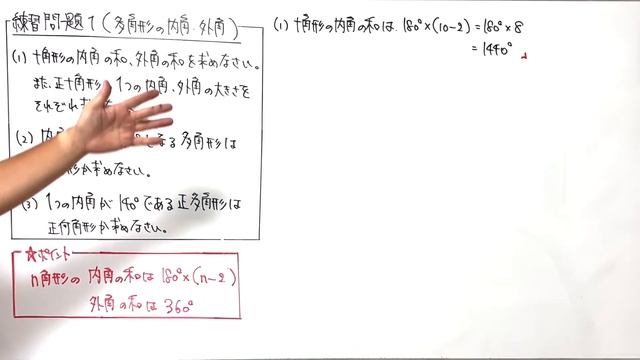 練習問題1(多角形の内角・外角)
(1) 十角形の内角の和、外角の和を求めなさい。
また、正十角形 1つの内角、外角の大きさを
それぞれ
(2) 内角 なる多角形は
形か求めなさい。
(3) 1つの内角が140°である正多角形は
正何角形か求めなさい。
☆ポイント
n角形の 内角の和は 180°×(n-2)
外角の和は 360°
(1) 十角形の内角の和は 180°×(10-2)=180°×8
=1440°